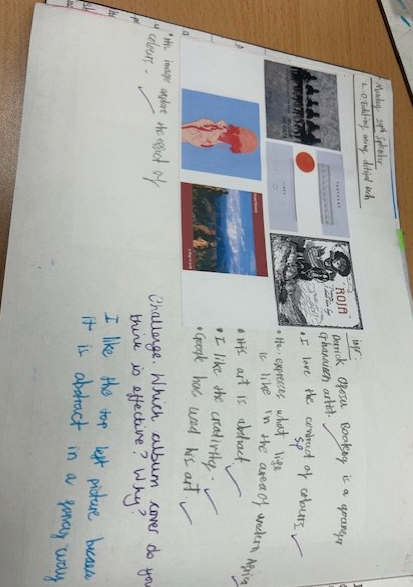 Monday 29th September
L.O Editing using digital tools
ROJA
Derrick Ofosu Boateng is a younger
Ghanaian artist.
• I love the construct of colours
sp
• He expresses what life
is like in the area of western Africa
• His art is abstract
• I like the creativity.
• Google have used his art
• His image explore the effect of
colours.
Challenge: Which album cover do you
think is effective? Why?
I like the top left picture because
it is abstract in a funny way